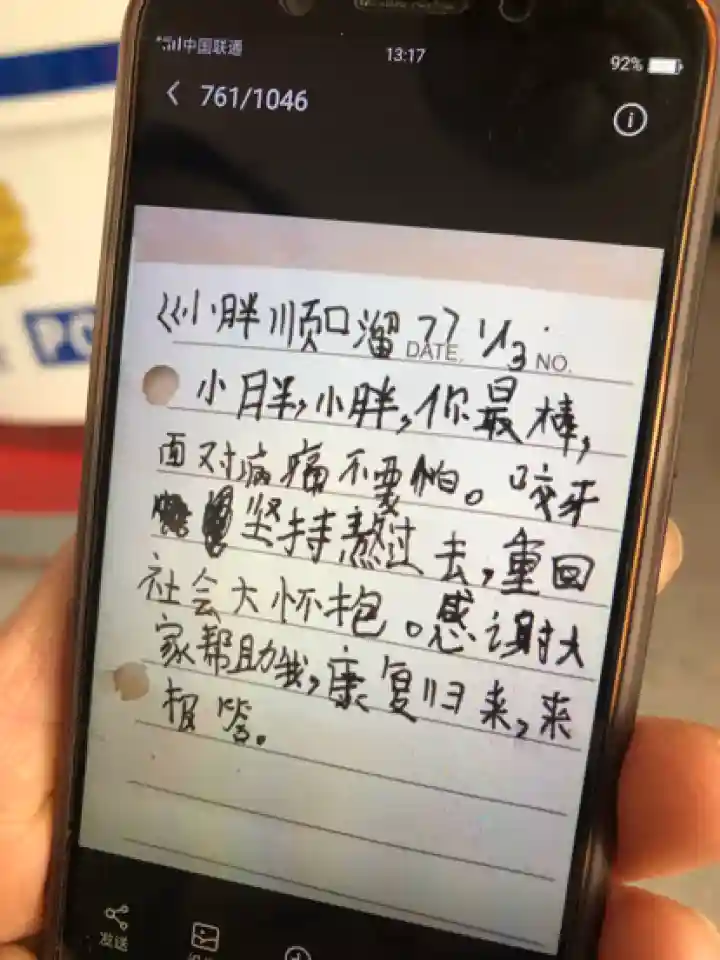 中国联通 13:17 92%
761/1046
《小胖顺口溜》 1/3
DATE. NO.
小胖,小胖,你最棒,
面对病痛不要怕。咬牙
坚持熬过去,重回
社会大怀抱。感谢大
家帮助我,康复归来,来
相答。
发送